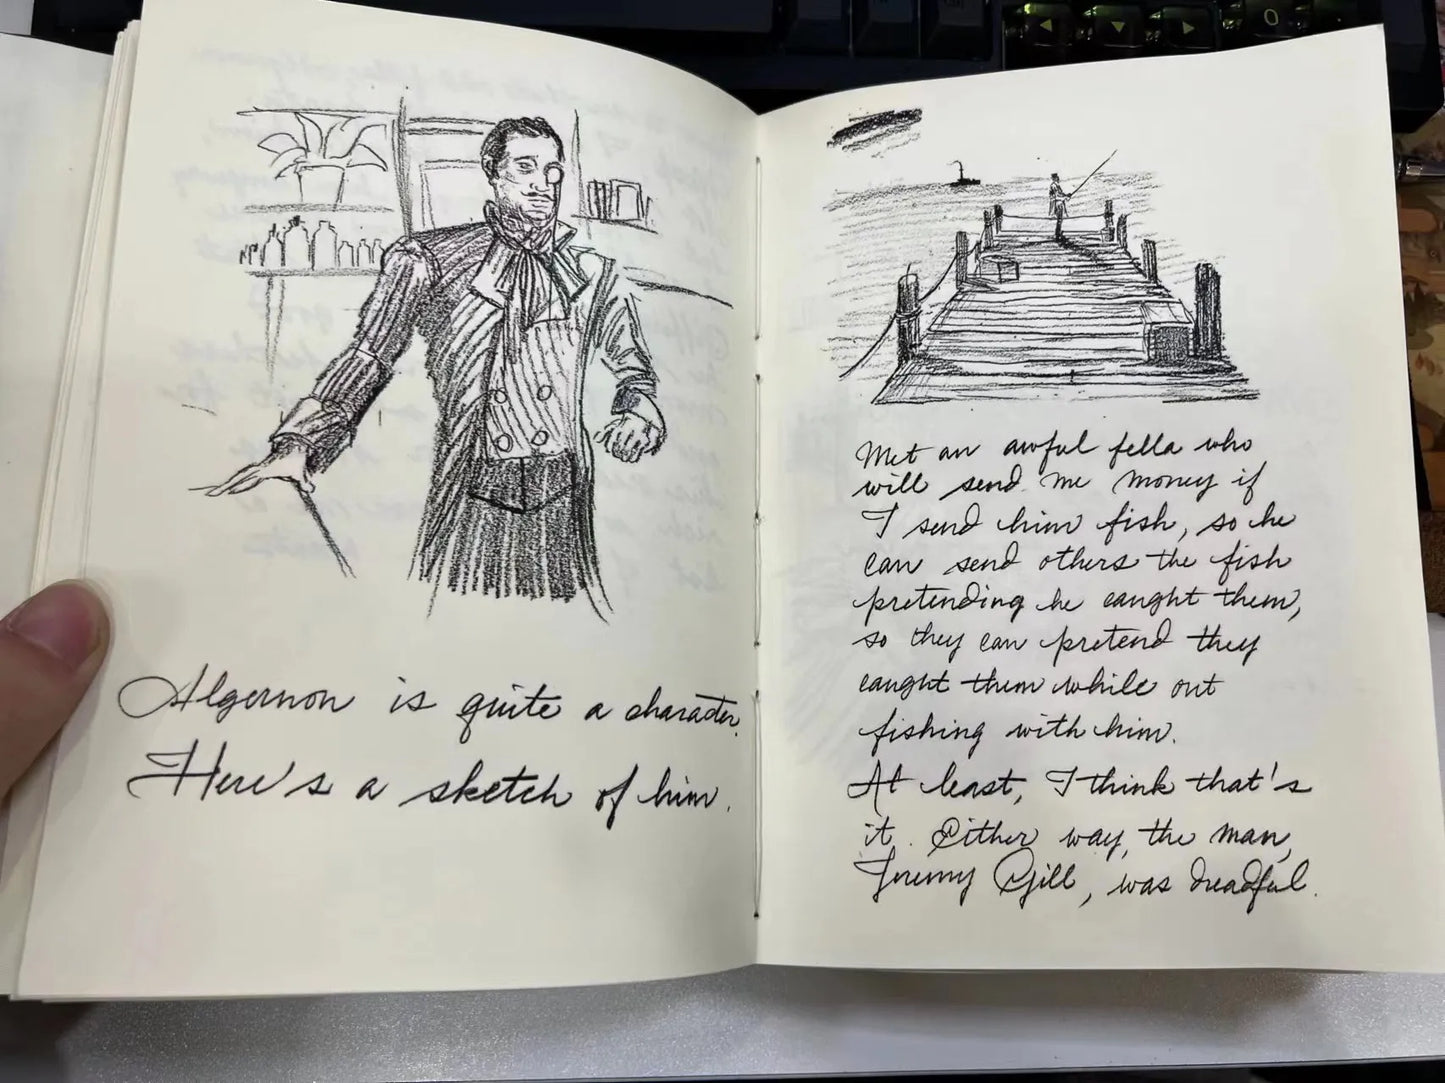 Algernon is quite a character.
Here's a sketch of him.
Met an awful fella who
will send me money if
I send him fish, so he
can send others the fish
pretending he caught them,
so they can pretend they
caught them while out
fishing with him.
At least, I think that's
it. Either way, the man,
Jeremy Gill, was dreadful.